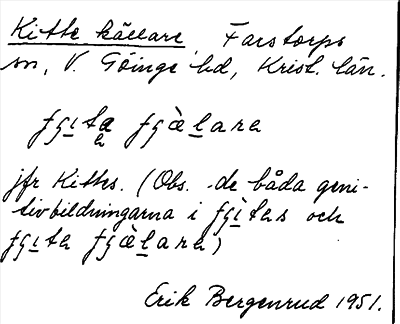 Kitte källare, Farstorps
sn, V. Göinge hd, Krist. län.
fgita fgàlara
jfr Kittes. (Obs. de båda geni-
tivbildningarna i fgìtas och
fgita fgàlara)
Erik Bergenrud 1951.